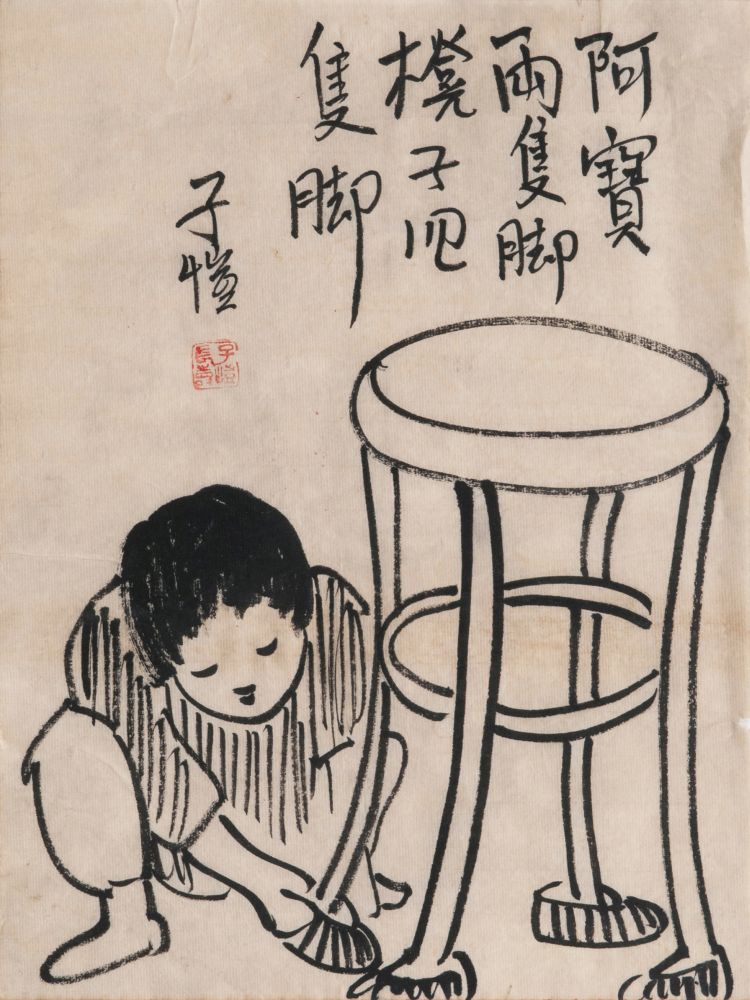 阿寶
兩隻脚
櫈子四
隻脚
子愷
子愷